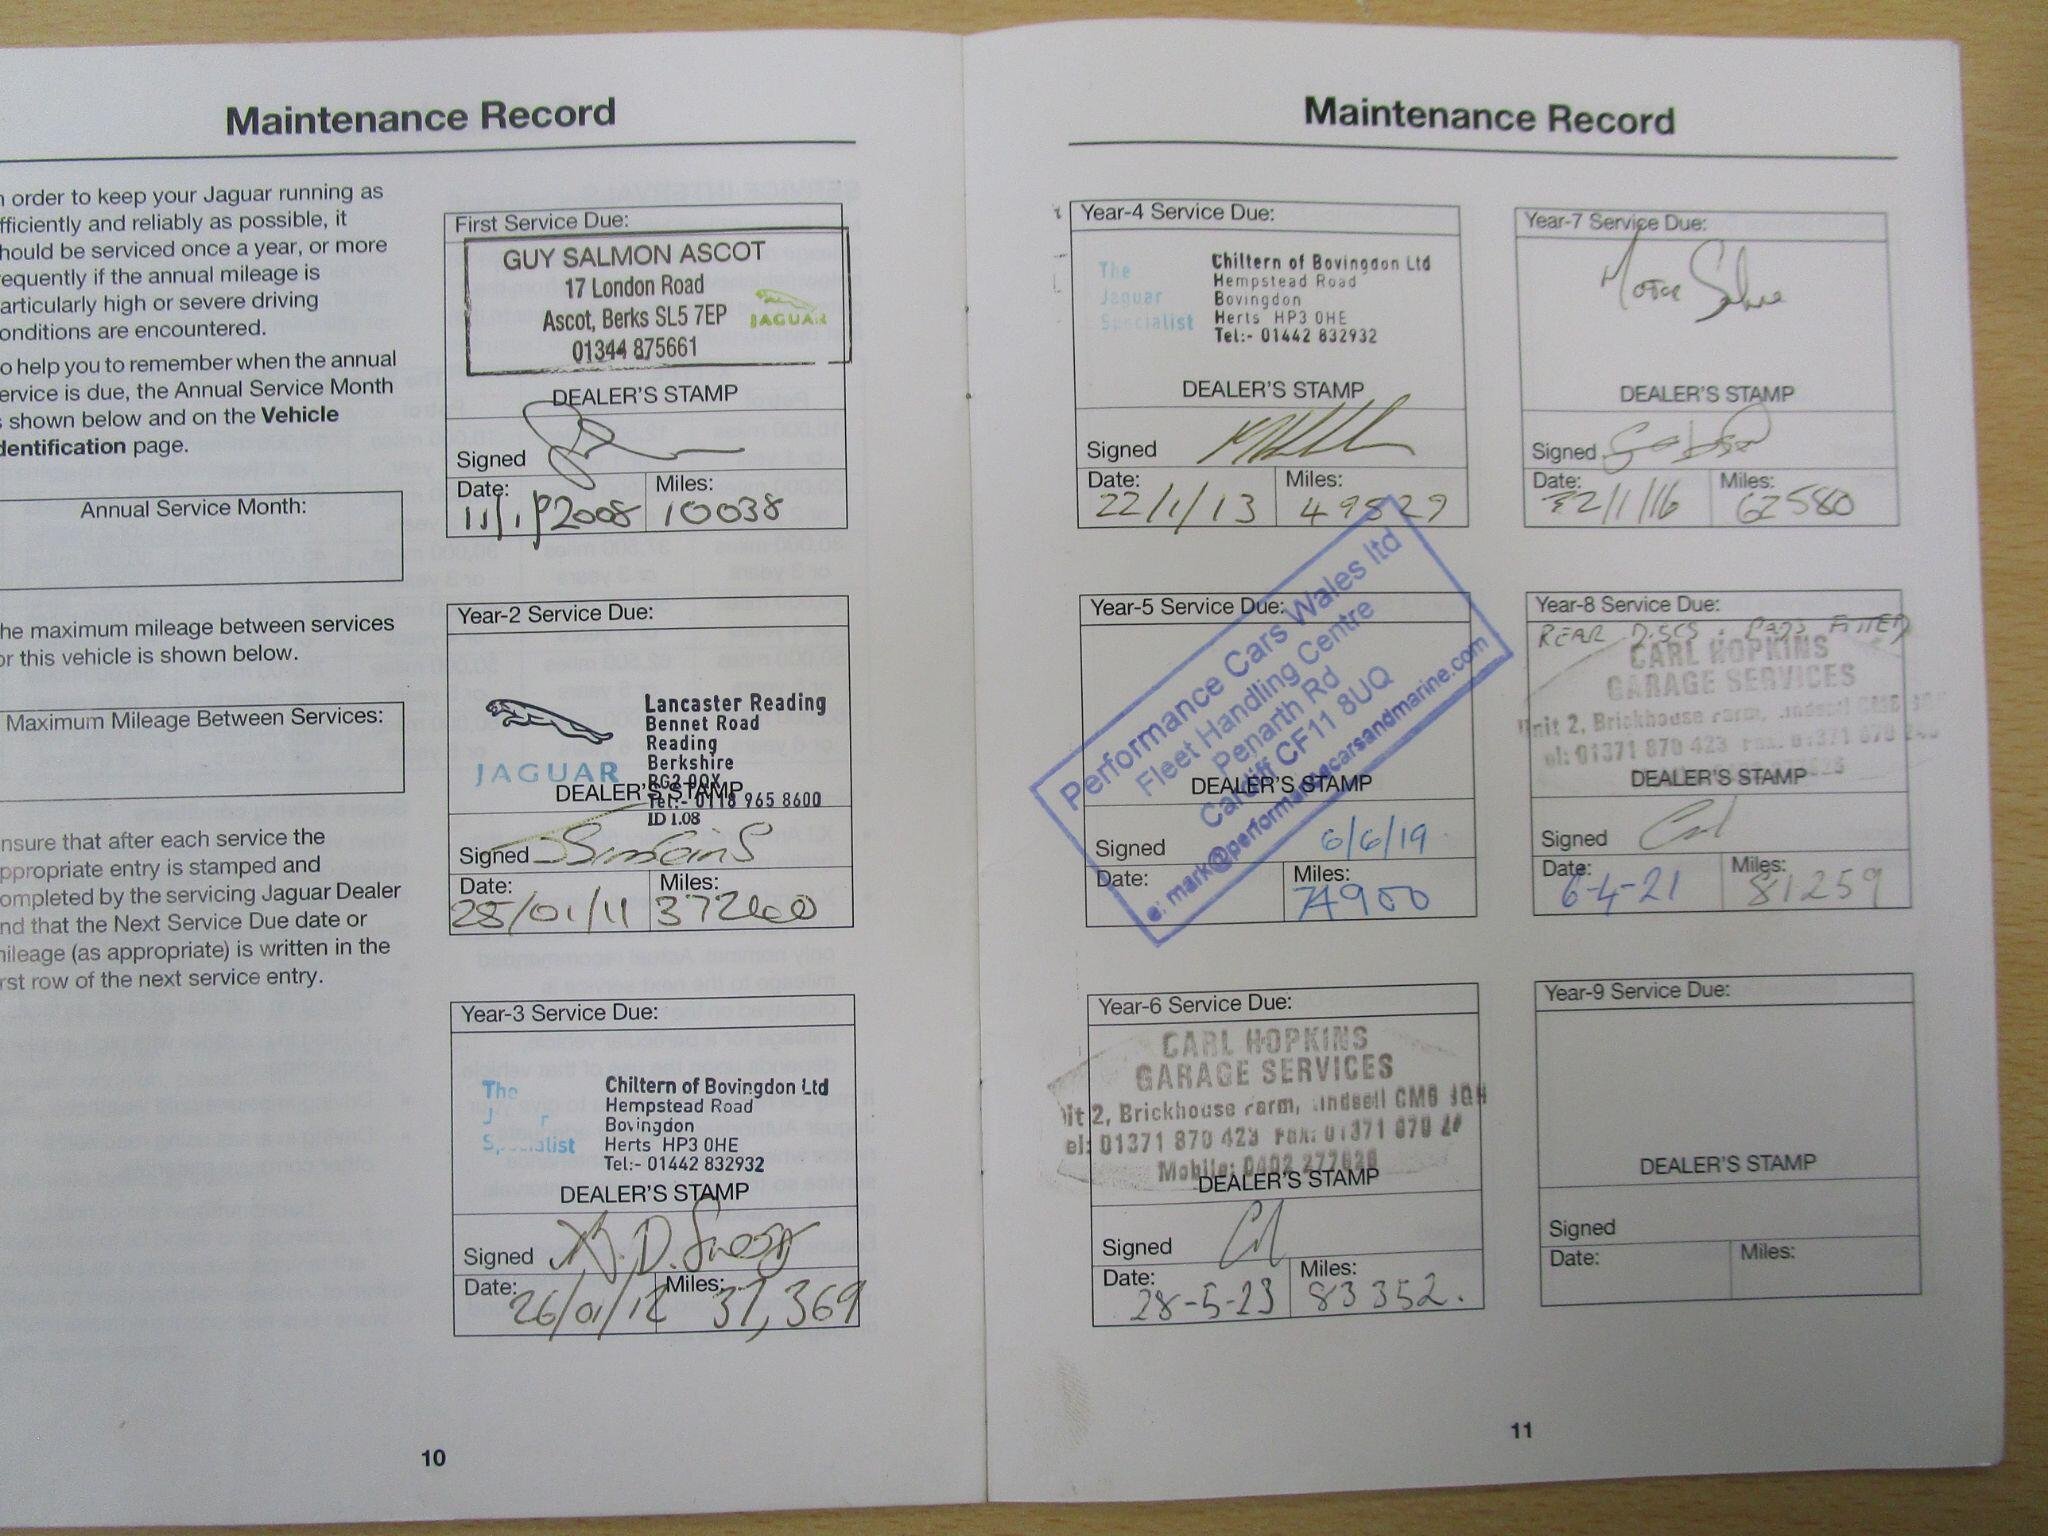 Maintenance Record
n order to keep your Jaguar running as
fficiently and reliably as possible, it
hould be serviced once a year, or more
requently if the annual mileage is
articularly high or severe driving
onditions are encountered.
o help you to remember when the annual
ervice is due, the Annual Service Month
s shown below and on the Vehicle
dentification page.
Annual Service Month:
he maximum mileage between services
or this vehicle is shown below.
Maximum Mileage Between Services:
nsure that after each service the
ppropriate entry is stamped and
ompleted by the servicing Jaguar Dealer
nd that the Next Service Due date or
nileage (as appropriate) is written in the
rst row of the next service entry.
First Service Due:
GUY SALMON ASCOT
17 London Road
Ascot, Berks SL5 7EP
JAGUAR
01344 875661
DEALER'S STAMP
Signed
Date: Miles:
2008 10038
Year-2 Service Due:
Lancaster Reading
Bennet Road
Reading
Berkshire
RG2 0QX
JAGUAR
DEALER'S STAMP
Tel:- 0118 965 8600
ID 1.08
Signed
Date: Miles:
28/01/11
Year-3 Service Due:
The
Chiltern of Bovingdon Ltd
Hempstead Road
Bovingdon
Herts HP3 0HE
Tel:- 01442 832932
DEALER'S STAMP
Signed
Date: Miles:
26/01/12 37,369
10
Maintenance Record
Year-4 Service Due:
The
Jaguar
Specialist
Chiltern of Bovingdon Ltd
Hempstead Road
Bovingdon
Herts HP3 0HE
Tel:- 01442 832932
DEALER'S STAMP
Signed
Date: Miles:
22/1/13 49829
Year-5 Service Due:
Performance Cars Wales ltd
Fleet Handling Centre
Penarth Rd
Cardiff CF11 8UQ
e: mark@performancecarsandmarine.com
DEALER'S STAMP
Signed 6/6/19
Date: Miles:
74900
Year-6 Service Due:
CARL HOPKINS
GARAGE SERVICES
it 2, Brickhouse Farm, CM6
el: 01371 870 423 Fax: 01371 870
Mobile:
DEALER'S STAMP
Signed
Date: Miles:
28-5-23 83352.
Year-7 Service Due:
DEALER'S STAMP
Signed
Date: Miles:
22/1/16 62580
Year-8 Service Due:
REAR DISCS PADS FITTED
CARL HOPKINS
GARAGE SERVICES
Unit 2, Brickhouse Farm,
el: 01371 870 423 Fax: 01371 870
DEALER'S STAMP
Signed
Date: Miles:
6-4-21 81259
Year-9 Service Due:
DEALER'S STAMP
Signed
Date: Miles:
11